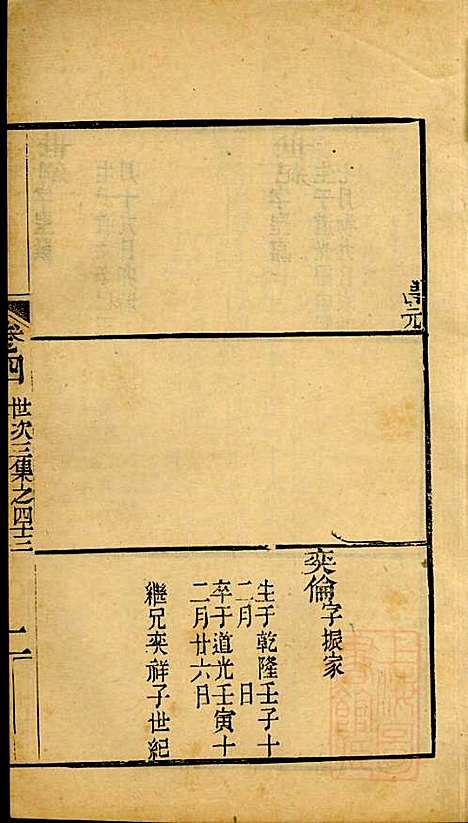 昌元
奕倫字振家
生于乾隆壬子十
二月　日
卒于道光壬寅十
二月廿六日
繼兄奕祥子世紀
卷四
世次三集之四十三
二